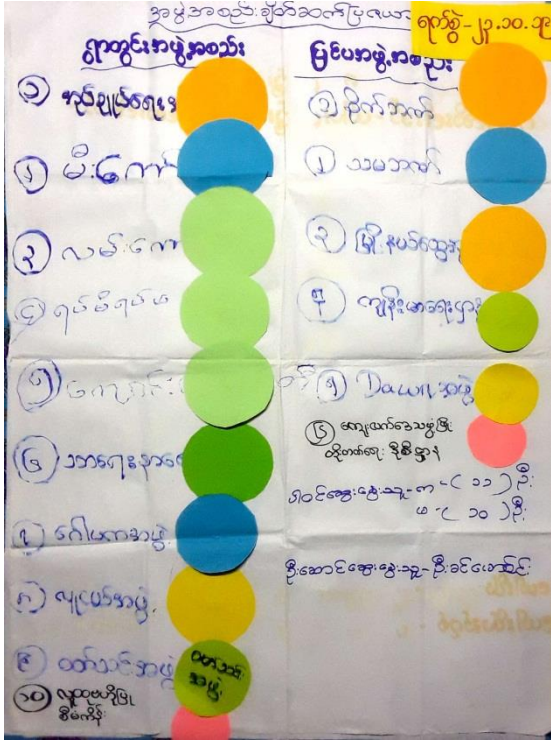 အဖွဲ့အစည်းချိတ်ဆက်ပြဇယား
ရက်စွဲ-၂၃.၁၀.၁၉
ရွာတွင်းအဖွဲ့အစည်း
၁ အုပ်ချုပ်ရေးအ
၂ မီးကော်
၃ လမ်းကော
၄ ရပ်မိရပ်ဖ
၅ ကျောင်း
၆ သာရေးနာရေ
၇ ဂေါပကအဖွဲ့
၈ လူငယ်အဖွဲ့
၉ ဝတ်သင်းအဖွဲ့
ဝတ်သင်း
အဖွဲ့
၁၀ လူထုဗဟိုပြု
စီမံကိန်း
ပြင်ပအဖွဲ့အစည်း
၁ စိုက်ဘဏ်
၂ သမဘဏ်
၃ မြို့နယ်ထွေအု
၄ ကျန်းမာရေးဌာန
၅ Dawn အဖွဲ့
၆ ကျေးလက်ဒေသဖွံ့ဖြိုး
တိုးတက်ရေး ဦးစီးဌာန
ပါဝင်ဆွေးနွေးသူ-ကျား-(၁၁)ဦး
မ-(၁၀)ဦး
ဦးဆောင်ဆွေးနွေးသူ-ဦးခင်အောင်